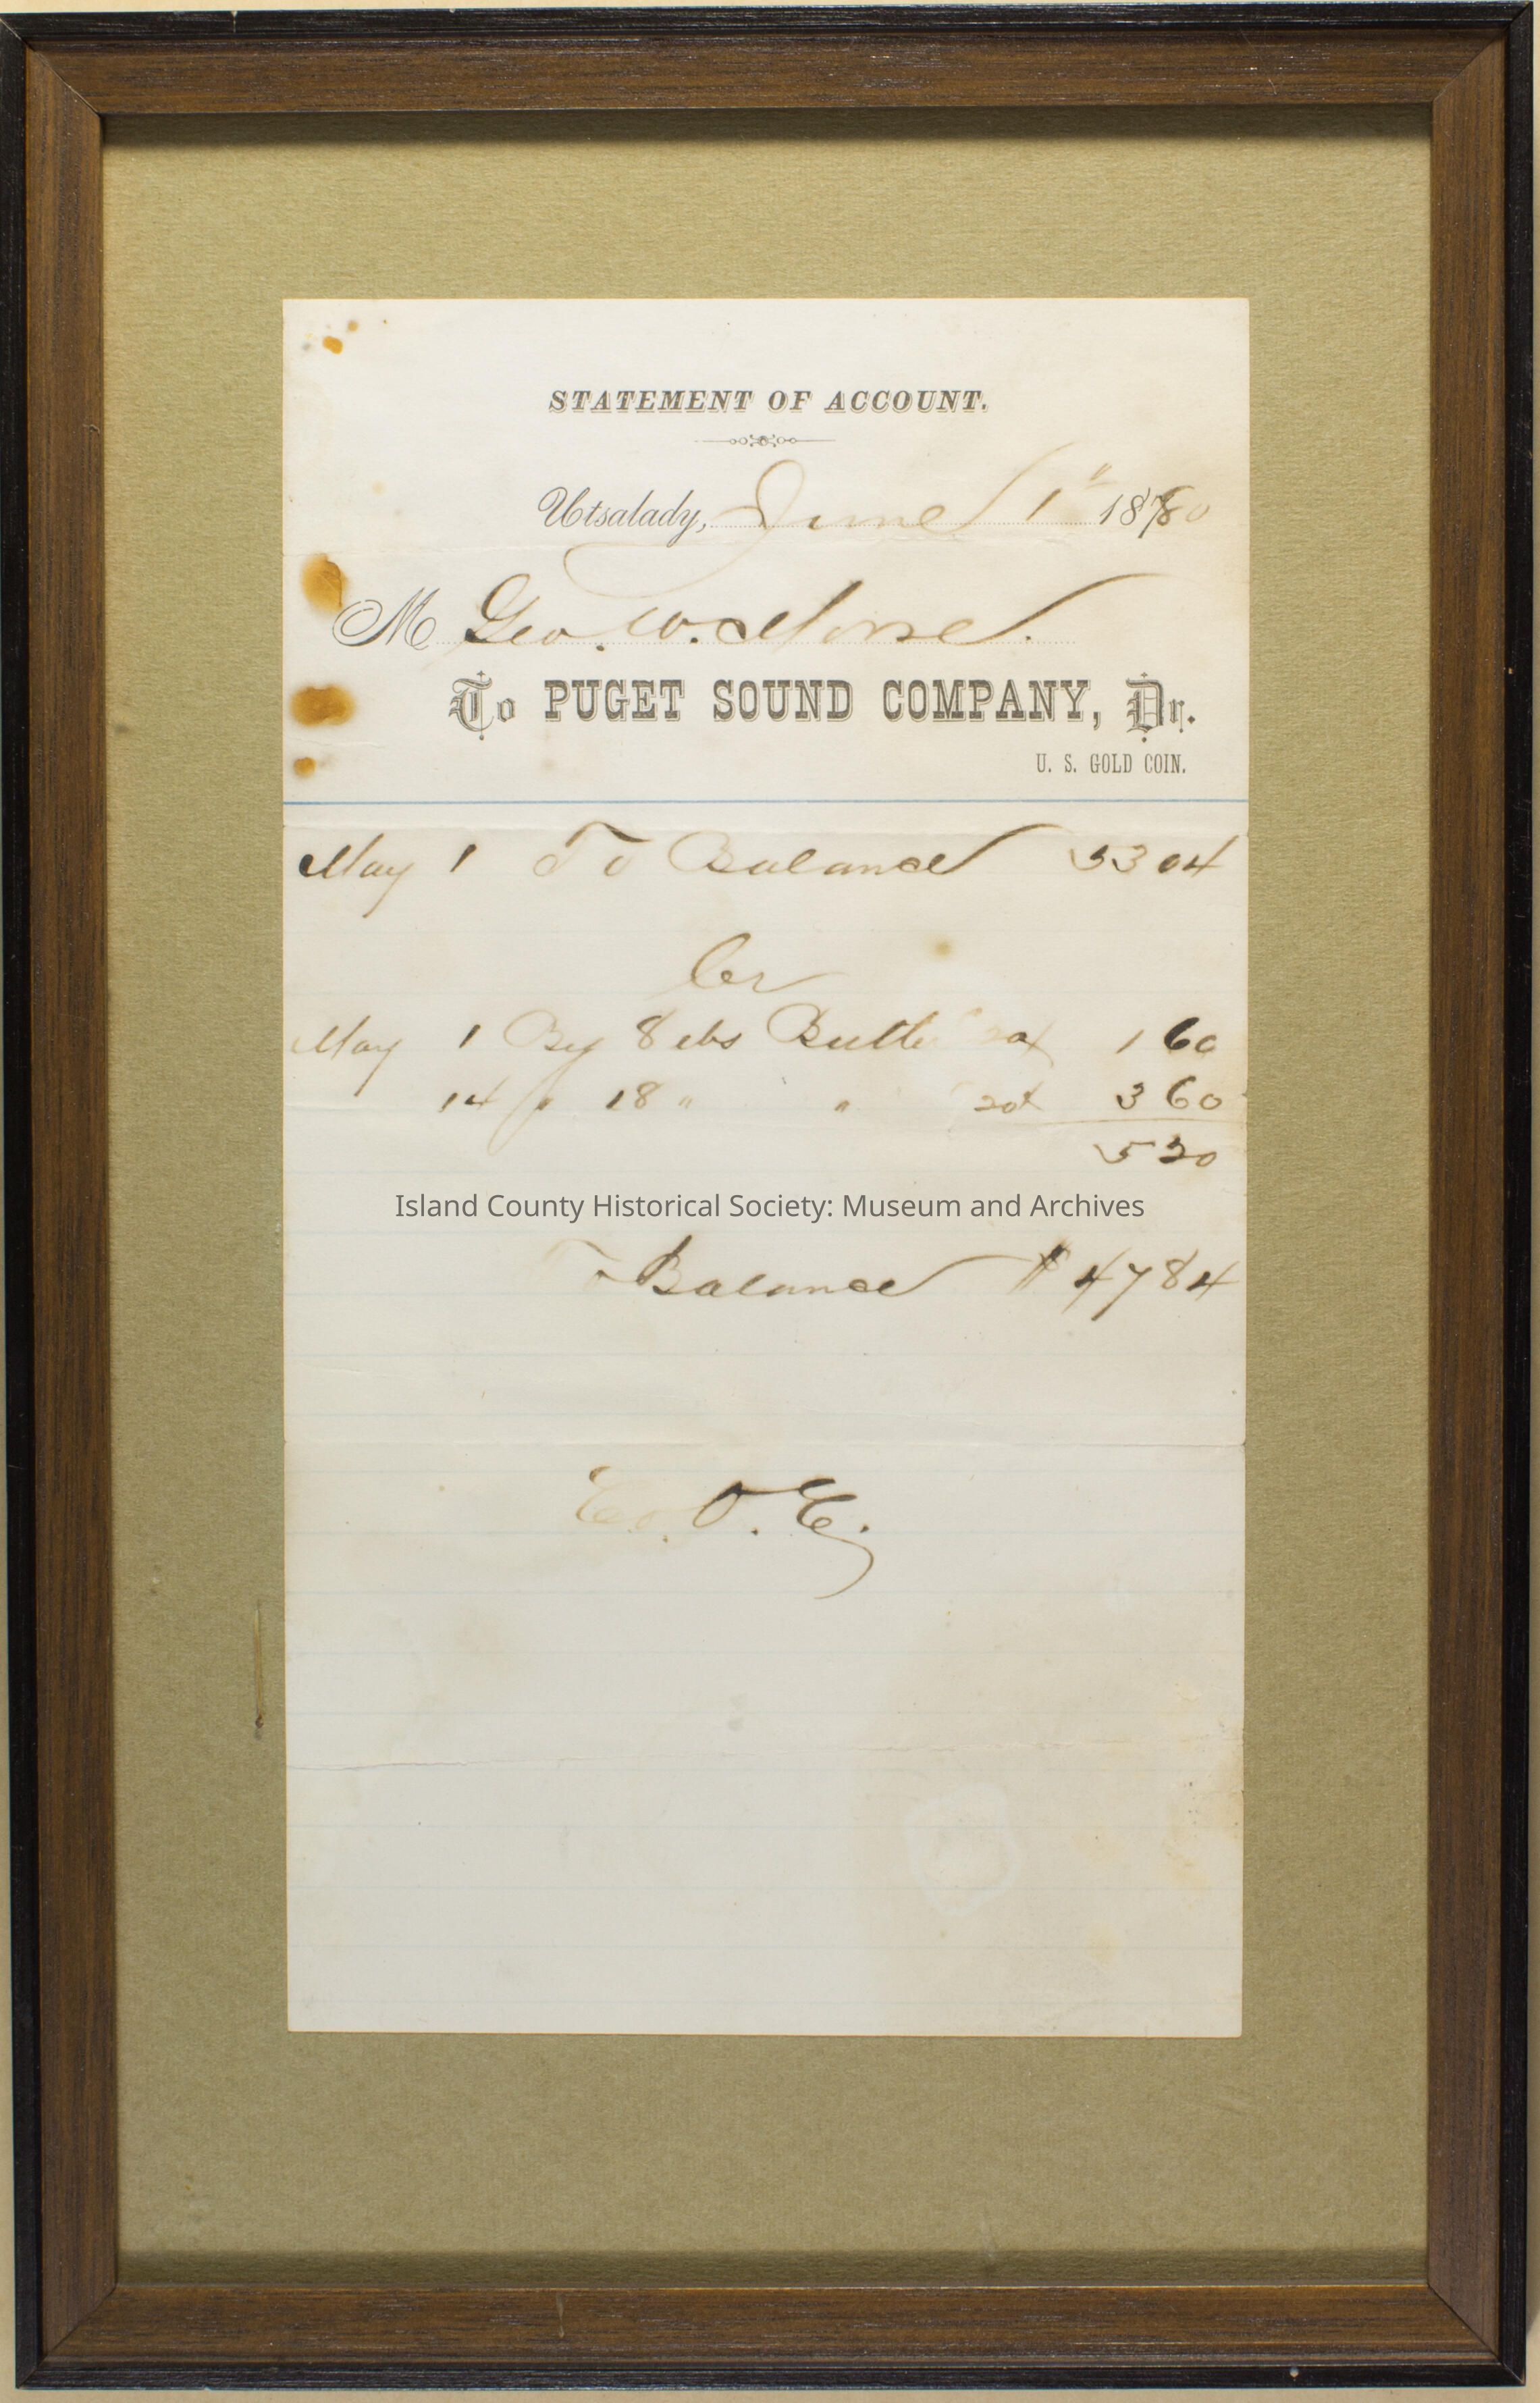 STATEMENT OF ACCOUNT.
Utsalady, June 1" 1880
M Geo. W. Morse.
To PUGET SOUND COMPANY, Dr.
U. S. GOLD COIN.
May 1 To Balance 53 04
Cr
May 1 By 8 lbs Butter 20¢ 1 60
14 " 18 " " 20¢ 3 60
5 20
Island County Historical Society: Museum and Archives
To Balance $ 47 84
E. O. E.